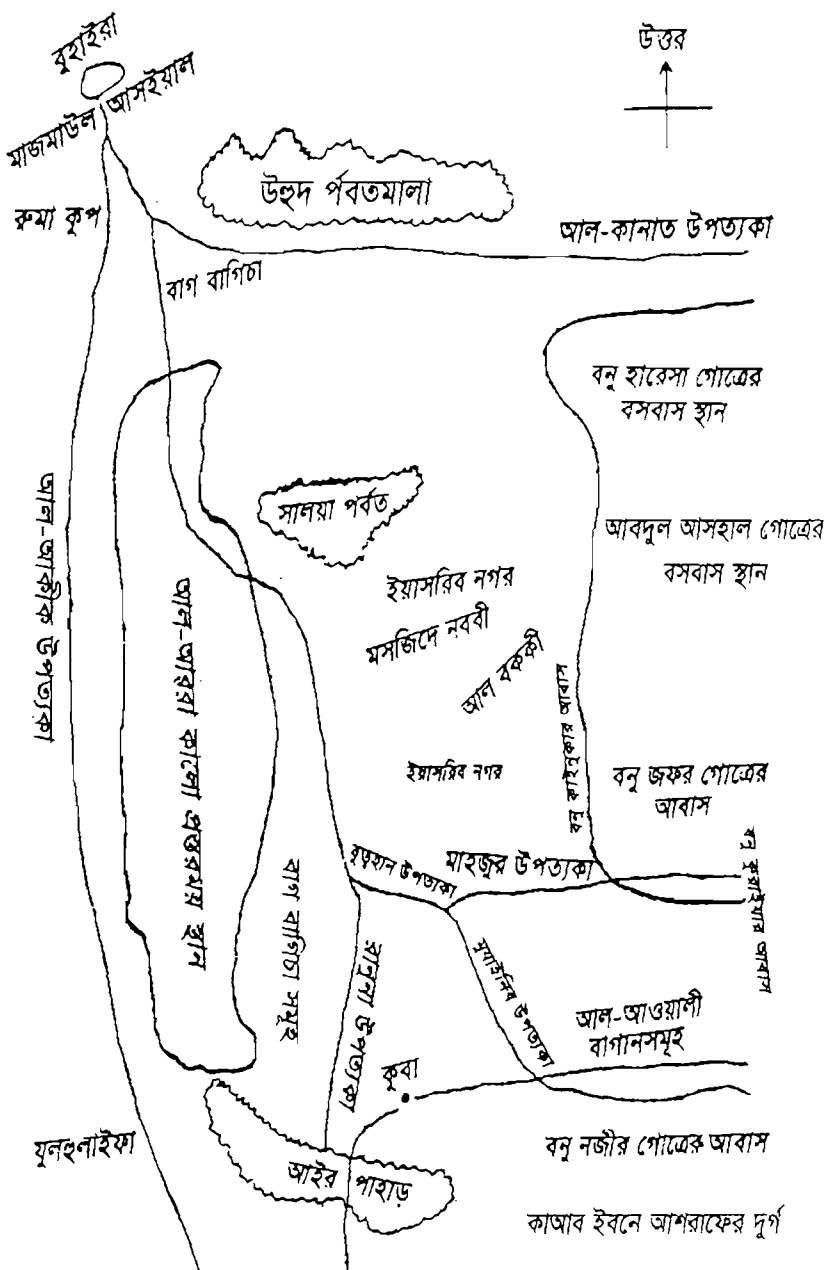 বুহাইরা
মাজমাউল আসইয়াল
উত্তর
উহুদ র্পবতমালা
রুমা কূপ
আল-কানাত উপত্যকা
বাগ বাগিচা
বনু হারেসা গোত্রের
বসবাস স্থান
সালয়া পর্বত
আল-আকীক উপত্যকা
আবদুল আসহাল গোত্রের
বসবাস স্থান
ইয়াসরিব নগর
মসজিদে নববী
আল বককী
আল-আররা কালো প্রস্তরময় স্থান
বনু কাইনুকার আবাস
ইয়াসরিব নগর
বনু জফর গোত্রের
আবাস
বুত্বহান উপত্যকা
মাহজুর উপত্যকা
বনু কুরাইযার আবাস
বাগ বাগিচা সমূহ
রানুনা উপত্যকা
মুযাইনিব উপত্যকা
আল-আওয়ালী
বাগানসমূহ
কুবা
যুলহুলাইফা
আইর পাহাড়
বনু নজীর গোত্রের আবাস
কাআব ইবনে আশরাফের দুর্গ